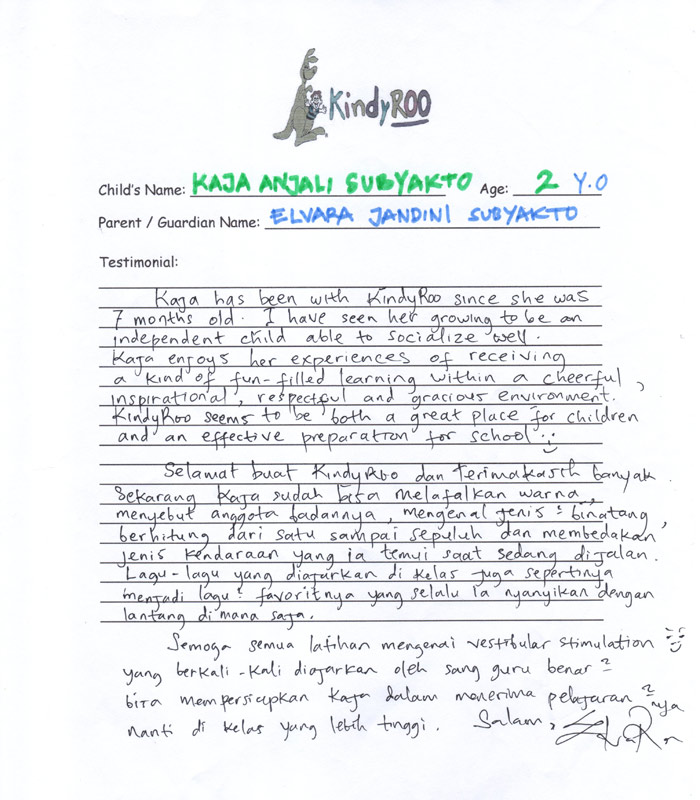 KindyROO
Child's Name: KAJA ANJALI SUBYAKTO Age: 2 Y.O
Parent / Guardian Name: ELVARA JANDINI SUBYAKTO
Testimonial:
Kaja has been with KindyRoo since she was
7 months old. I have seen her growing to be an
independent child able to socialize well.
Kaja enjoys her experiences of receiving
a kind of fun-filled learning within a cheerful,
inspirational, respectful and gracious environment.
KindyRoo seems to be both a great place for children
and an effective preparation for school
Selamat buat KindyRoo dan Terimakasih banyak.
Sekarang Kaja sudah bisa melafalkan warna,
menyebut anggota badannya, mengenal jenis² binatang,
berhitung dari satu sampai sepuluh dan membedakan
jenis kendaraan yang ia temui saat sedang dijalan.
Lagu-lagu yang diajarkan di kelas juga sepertinya
menjadi lagu² favoritnya yang selalu ia nyanyikan dengan
lantang di mana saja.
Semoga semua latihan mengenai vestibular stimulation
yang berkali-kali diajarkan oleh sang guru benar²
bisa mempersiapkan Kaja dalam menerima pelajaran²nya
nanti di kelas yang lebih tinggi. Salam,